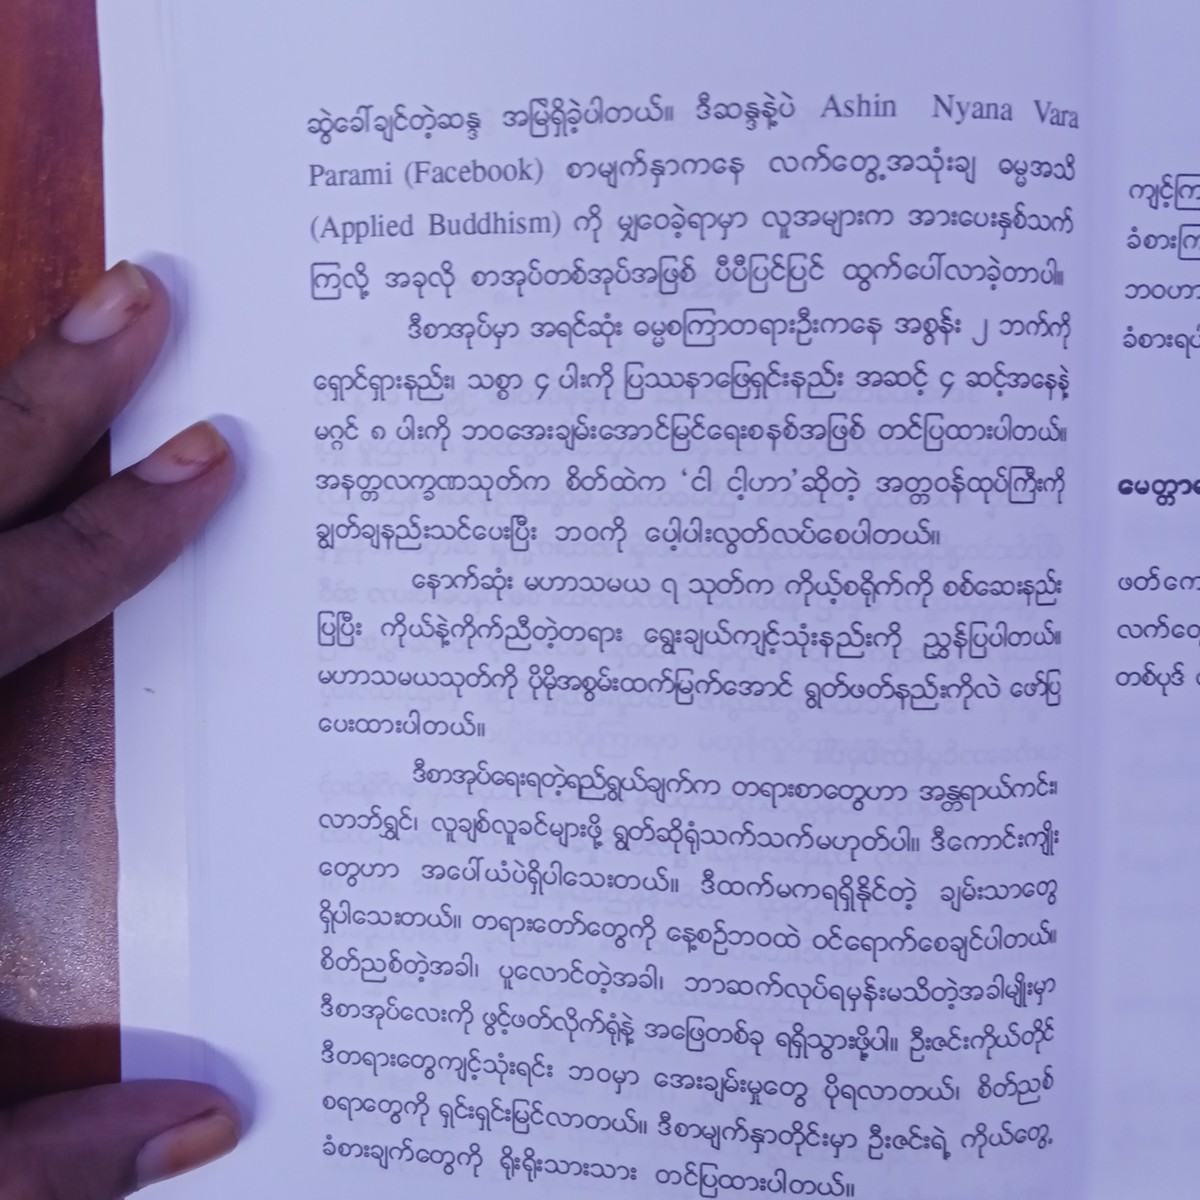 ဆွဲခေါ်ချင်တဲ့ဆန္ဒ အမြဲရှိခဲ့ပါတယ်။ ဒီဆန္ဒနဲ့ပဲ Ashin Nyana Vara
Parami (Facebook) စာမျက်နှာကနေ လက်တွေ့အသုံးချ ဓမ္မအသိ
(Applied Buddhism) ကို မျှဝေခဲ့ရာမှာ လူအများက အားပေးနှစ်သက်
ကြလို့ အခုလို စာအုပ်တစ်အုပ်အဖြစ် ပီပီပြင်ပြင် ထွက်ပေါ်လာခဲ့တာပါ။
ဒီစာအုပ်မှာ အရင်ဆုံး ဓမ္မစကြာတရားဦးကနေ အစွန်း ၂ ဘက်ကို
ရှောင်ရှားနည်း၊ သစ္စာ ၄ ပါးကို ပြဿနာဖြေရှင်းနည်း အဆင့် ၄ ဆင့်အနေနဲ့
မဂ္ဂင် ၈ ပါးကို ဘဝအေးချမ်းအောင်မြင်ရေးစနစ်အဖြစ် တင်ပြထားပါတယ်။
အနတ္တလက္ခဏသုတ်က စိတ်ထဲက ‘ငါ ငါ့ဟာ’ဆိုတဲ့ အတ္တဝန်ထုပ်ကြီးကို
ချွတ်ချနည်းသင်ပေးပြီး ဘဝကို ပေါ့ပါးလွတ်လပ်စေပါတယ်။
နောက်ဆုံး မဟာသမယ ၇ သုတ်က ကိုယ့်စရိုက်ကို စစ်ဆေးနည်း
ပြပြီး ကိုယ်နဲ့ကိုက်ညီတဲ့တရား ရွေးချယ်ကျင့်သုံးနည်းကို ညွှန်ပြပါတယ်။
မဟာသမယသုတ်ကို ပိုမိုအစွမ်းထက်မြက်အောင် ရွတ်ဖတ်နည်းကိုလဲ ဖော်ပြ
ပေးထားပါတယ်။
ဒီစာအုပ်ရေးရတဲ့ရည်ရွယ်ချက်က တရားစာတွေဟာ အန္တရာယ်ကင်း၊
လာဘ်ရွှင်၊ လူချစ်လူခင်များဖို့ ရွတ်ဆိုရုံသက်သက်မဟုတ်ပါ။ ဒီကောင်းကျိုး
တွေဟာ အပေါ်ယံပဲရှိပါသေးတယ်။ ဒီထက်မကရရှိနိုင်တဲ့ ချမ်းသာတွေ
ရှိပါသေးတယ်။ တရားတော်တွေကို နေ့စဉ်ဘဝထဲ ဝင်ရောက်စေချင်ပါတယ်။
စိတ်ညစ်တဲ့အခါ၊ ပူလောင်တဲ့အခါ၊ ဘာဆက်လုပ်ရမှန်းမသိတဲ့အခါမျိုးမှာ
ဒီစာအုပ်လေးကို ဖွင့်ဖတ်လိုက်ရုံနဲ့ အဖြေတစ်ခု ရရှိသွားဖို့ပါ။ ဦးဇင်းကိုယ်တိုင်
ဒီတရားတွေကျင့်သုံးရင်း ဘဝမှာ အေးချမ်းမှုတွေ ပိုရလာတယ်၊ စိတ်ညစ်
စရာတွေကို ရှင်းရှင်းမြင်လာတယ်။ ဒီစာမျက်နှာတိုင်းမှာ ဦးဇင်းရဲ့ ကိုယ်တွေ့
ခံစားချက်တွေကို ရိုးရိုးသားသား တင်ပြထားပါတယ်။
ကျင့်ကြ
ခံစားကြ
ဘဝဟာ
ခံစားရ
မေတ္တာ
ဖတ်
လက်တွေ
တစ်ပုဒ်